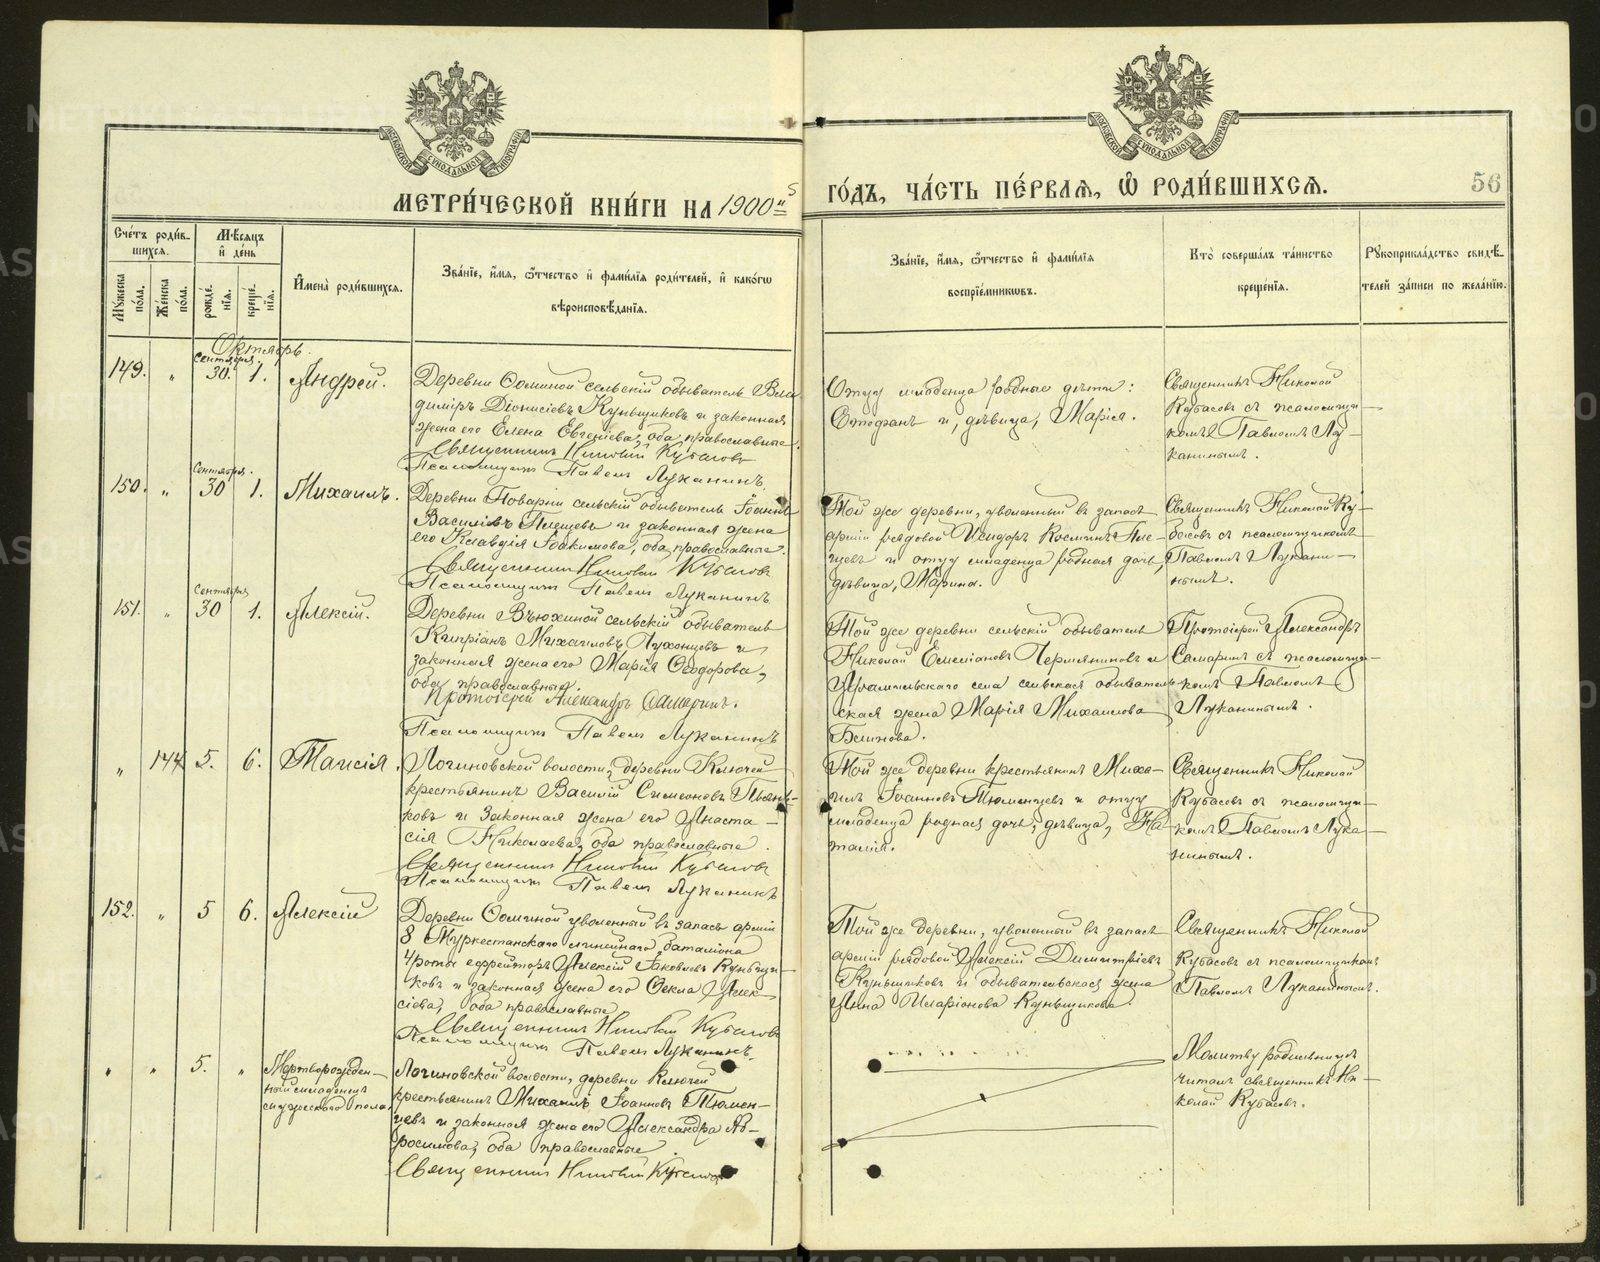 МЕТРИ́ЧЕСКОЙ КНИ́ГИ НА 1900 й
ГО́ДЪ, ЧА́СТЬ ПЕ́РВАѦ, Ѡ҆ РОДИ́ВШИХСѦ.
56
Сче́тъ роди́в-
шихсѧ.
Мѣ́сѧцъ
и҆ де́нь
И҆мена̀ роди́вшихсѧ.
Зва́нїе, и҆́мѧ, ѻ҆́тчество и҆ фами́лїѧ роди́телей, и҆ како́гѡ
вѣроисповѣ́данїѧ.
Мꙋ́жеска
по́ла.
Же́нска
по́ла.
рожде́-
нїѧ.
креще́-
нїѧ.
Зва́нїе, и҆́мѧ, ѻ҆́тчество и҆ фами́лїѧ
воспрїе́мникѡвъ.
Кто̀ соверша́лъ та́инство
креще́нїѧ.
Рꙋкоприкла́дство свидѣ́-
телей за́писи по жела́нїю.
Октябрь.
149. „ Сентября 30. 1. Андрей.
Деревни Ѳоминой сельскій обыватель Вла-
димiръ Діонисіевъ Куньщиковъ и законная
жена его Елена Евгеніева, оба православные.
Священникъ Николай Кубасовъ
Псаломщикъ Павелъ Луканинъ.
Отцу младенца родные дѣти:
Стефанъ и, дѣвица, Марія.
Священникъ Николай
Кубасовъ съ псаломщи-
комъ Павломъ Лу-
канинымъ.
150. „ Сентября 30 1. Михаилъ.
Деревни Поварни сельскій обыватель Іоаннъ
Василіевъ Плещевъ и законная жена
его Клавдія Іоакимова, оба православные.
Священникъ Николай Кубасовъ
Псаломщикъ Павелъ Луканинъ
Той же деревни, уволенный въ запасъ
арміи рядовой Исидоръ Космичъ Пле-
щевъ и отцу младенца родная дочь,
дѣвица, Марина.
Священникъ Николай Ку-
басовъ съ псаломщикомъ
Павломъ Лукани-
нымъ.
151. „ Сентября 30 1. Алексій.
Деревни Вьюхиной сельскій обыватель
Кипріанъ Михаиловъ Пухонцевъ и
законная жена его Марія Ѳеодорова,
оба православные.
Протоіерей Александръ Самаринъ.
Псаломщикъ Павелъ Луканинъ
Той же деревни сельскій обыватель
Николай Емеліановъ Пермяниновъ и
Арамильскаго села сельская обыватель-
ская жена Марія Михаилова
Блинова.
Протоіерей Александръ
Самаринъ съ псаломщи-
комъ Павломъ
Луканинымъ.
„ 144 5. 6. Таисія.
Логиновской волости, деревни Ключей
крестьянинъ Василій Симеоновъ Пьян-
ковъ и законная жена его Анаста-
сія Николаева, оба православные.
Священникъ Николай Кубасовъ
Псаломщикъ Павелъ Луканинъ
Той же деревни крестьянинъ Миха-
илъ Іоанновъ Тюменцевъ и отцу
младенца родная дочь, дѣвица, На-
талія.
Священникъ Николай
Кубасовъ съ псаломщи-
комъ Павломъ Лука-
нинымъ.
152. „ 5 6. Алексій
Деревни Ѳоминой уволенный въ запасъ арміи
8 Туркестанскаго линейнаго баталіона
4 роты ефрейторъ Алексій Іаковлевъ Куньщи-
ковъ и законная жена его Ѳекла Алек-
сіева, оба православные
Священникъ Николай Кубасовъ
Псаломщикъ Павелъ Луканинъ.
Той же деревни, уволенный въ запасъ
арміи рядовой Алексій Димитріевъ
Куньщиковъ и обывательская жена
Анна Иларіонова Куньщикова.
Священникъ Николай
Кубасовъ съ псаломщикомъ
Павломъ Луканинымъ.
„ „ 5. „ Мертворожден-
ный младенецъ
мужскаго пола.
Логиновской волости, деревни Ключей
крестьянинъ Михаилъ Іоанновъ Тюмен-
цевъ и законная жена его Александра Ав-
росимова, оба православные.
Священникъ Николай Кубасовъ
Молитву родильницѣ
читалъ священникъ Ни-
колай Кубасовъ.